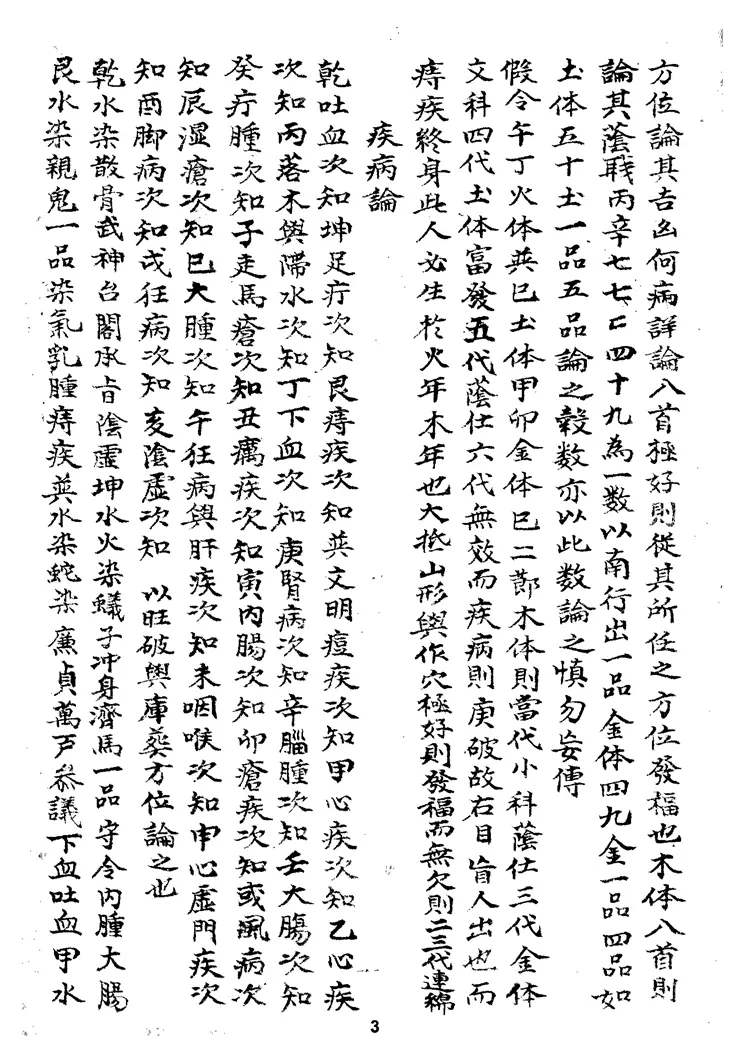 方位論其吉凶何病詳論八首極好則從其所任之方位發福也木体八首則
論其蔭職丙辛七七匚四十九為一数以南行出一品金体四九金一品四品如
土体五十土一品五品論之穀数亦以此数論之慎勿妄傳
假令午丁火体巽巳土体甲卯金体巳二節木体則當代小科蔭仕三代金体
文科四代土体富發五代蔭仕六代無效而疾病則庚破故右目盲人出也而
痔疾終身此人必生於火年木年也大抵山形與作穴極好則發福而無欠則二三代連綿
疾病論
乾吐血次知坤足疔次知艮痔疾次知巽文明痘疾次知甲心疾次知乙心疾
次知丙落木與滯水次知丁下血次知庚腎病次知辛腦腫次知壬大腸次知
癸疔腫次知子走馬瘡次知丑癘疾次知寅內腸次知卯瘡疾次知或風病次
知辰湿瘡次知巳大腫次知午狂病與肝疾次知未咽喉次知申心虛門疾次
知酉脚病次知戌狂病次知亥陰虛次知 以旺破與庫葬方位論之也
乾水染散骨武神台閣承旨陰虛坤水火染蟻子冲身濟馬一品守令內腫大腸
艮水染親鬼一品染氣乳腫痔疾巽水染蛇染廉貞萬戸參議下血吐血甲水
3